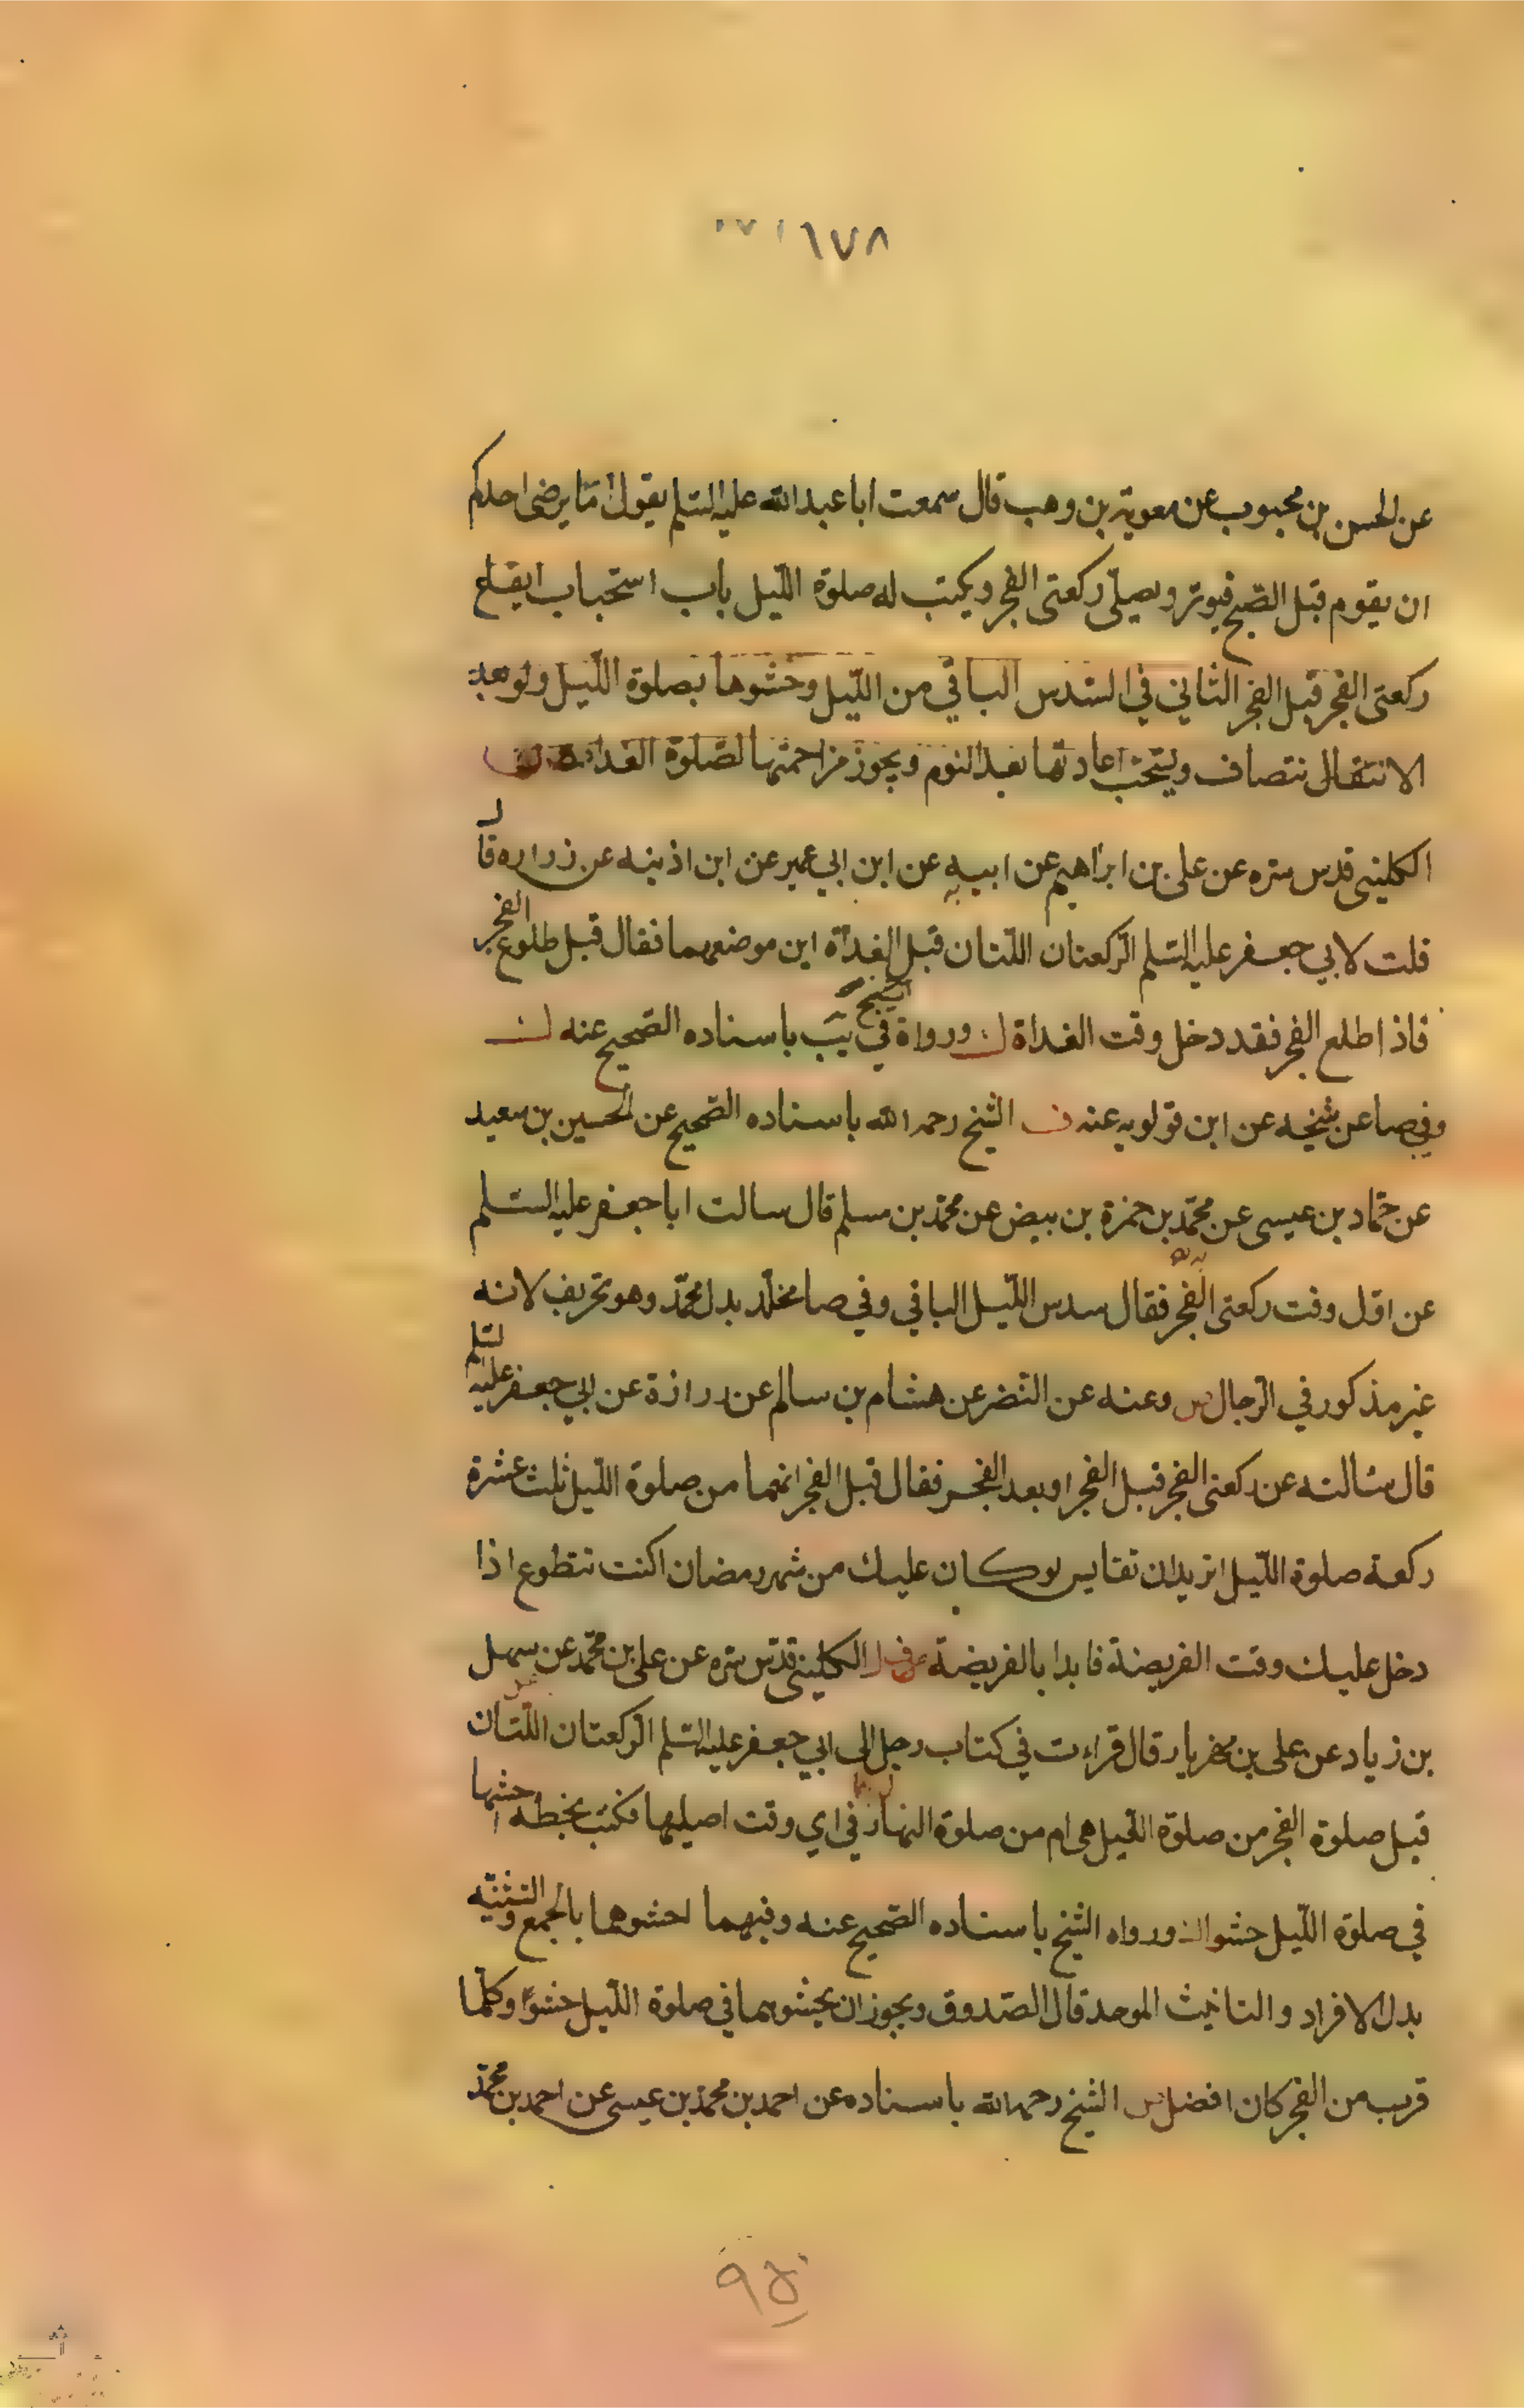 ١٦٧٨
عن الحسن بن محبوب عن معوية بن وهب قال سمعت ابا عبد الله عليه السلم يقول اما يرضى احدكم
ان يقوم قبل الصبح فيوتر ويصلى ركعتى الفجر ويكتب له صلوة الليل باب استحباب ايقاع
ركعتى الفجر قبل الفجر الثانى في السدس الباقي من الليل وحشوها بصلوة الليل ولو بعد
الانتقال نتصاف ويستحب اعادتها بعد النوم ويجوز مزاحمتها لصلوة الغداة
الكلينى قدس سره عن على بن ابراهيم عن ابيه عن ابن ابي عمير عن ابن اذينه عن زراره قال
قلت لابي جعفر عليه السلم الركعتان اللتان قبل الغداة اين موضعهما فقال قبل طلوع الفجر
فاذا طلع الفجر فقد دخل وقت الغداة ورواه الشيخ في يب باسناده الصحيح عنه
وفي صا عن شيخه عن ابن قولويه عنه الشيخ رحمه الله باسناده الصحيح عن الحسين بن سعيد
عن حماد بن عيسى عن محمد بن حمزة بن بيض عن محمد بن مسلم قال سالت ابا جعفر عليه السلم
عن اول وقت ركعتى الفجر فقال سدس الليل الباقي وفي صا مخلد بدل محمد وهو تحريف لانه
غير مذكور في الرجال وعنه عن النضر عن هشام بن سالم عن زرارة عن ابي جعفر عليه السلم
قال سالته عن ركعتى الفجر قبل الفجر او بعد الفجر فقال قبل الفجر انهما من صلوة الليل ثلث عشرة
ركعة صلوة الليل اتريد ان تقايس لو كان عليك من شهر رمضان اكنت تتطوع اذا
دخل عليك وقت الفريضة فابدا بالفريضة الكلينى قدس سره عن على بن محمد عن سهل
بن زياد عن على بن مهزيار قال قراءت في كتاب رجل الى ابي جعفر عليه السلم الركعتان اللتان
قبل صلوة الفجر من صلوة الليل هى ام من صلوة النهار في اي وقت اصليها فكتب بخطه احشها
في صلوة الليل حشوا ورواه الشيخ باسناده الصحيح عنه وفيهما احشوهما بالجمع والتثنيه
بدل الافراد والتانيث الموحد قال الصدوق ويجوز ان يحشوهما في صلوة الليل حشوا وكلما
قرب من الفجر كان افضل الشيخ رحمه الله باسناده عن احمد بن محمد بن عيسى عن احمد بن محمد